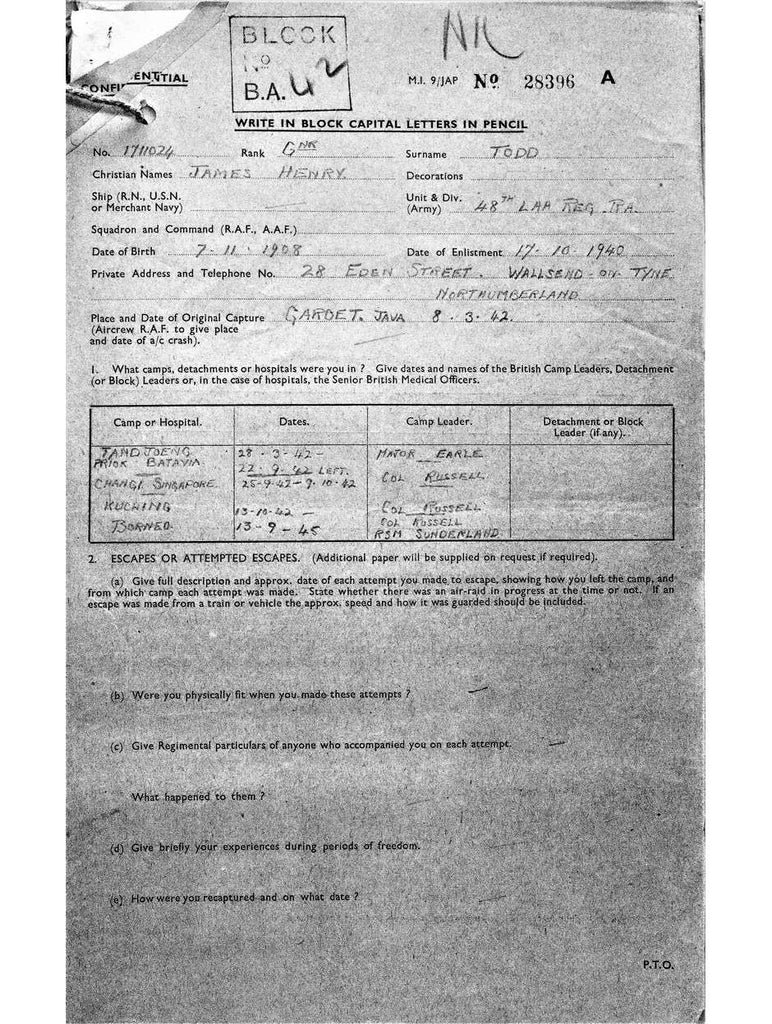 BLOCK
No
B.A. 42
NR
CONFIDENTIAL
M.I. 9/JAP No. 28396 A
WRITE IN BLOCK CAPITAL LETTERS IN PENCIL
No. 1711024 Rank GNR Surname TODD
Christian Names JAMES HENRY Decorations
Ship (R.N., U.S.N. or Merchant Navy) Unit & Div. (Army) 48TH LAA REG. RA.
Squadron and Command (R.A.F., A.A.F.)
Date of Birth 7-11-1908 Date of Enlistment 17-10-1940
Private Address and Telephone No. 28 EDEN STREET. WALLSEND-ON-TYNE
NORTHUMBERLAND
Place and Date of Original Capture GAROET. JAVA 8.3.42.
(Aircrew R.A.F. to give place
and date of a/c crash).
1. What camps, detachments or hospitals were you in ? Give dates and names of the British Camp Leaders, Detachment
(or Block) Leaders or, in the case of hospitals, the Senior British Medical Officers.
Camp or Hospital. Dates. Camp Leader. Detachment or Block
Leader (if any).
TANDJOENG 28-3-42- MAJOR EARLE
PRIOK BATAVIA 22-9-42 LEFT.
CHANGI SINGAPORE. 25-9-42-9-10-42 COL RUSSELL
KUCHING 13-10-42 - COL RUSSELL
BORNEO. 13-9-45 COL RUSSELL
RSM SUNDERLAND.
2. ESCAPES OR ATTEMPTED ESCAPES. (Additional paper will be supplied on request if required).
(a) Give full description and approx. date of each attempt you made to escape, showing how you left the camp, and
from which camp each attempt was made. State whether there was an air-raid in progress at the time or not. If an
escape was made from a train or vehicle the approx. speed and how it was guarded should be included.
(b) Were you physically fit when you made these attempts ?
(c) Give Regimental particulars of anyone who accompanied you on each attempt.
What happened to them ?
(d) Give briefly your experiences during periods of freedom.
(e) How were you recaptured and on what date ?
P.T.O.